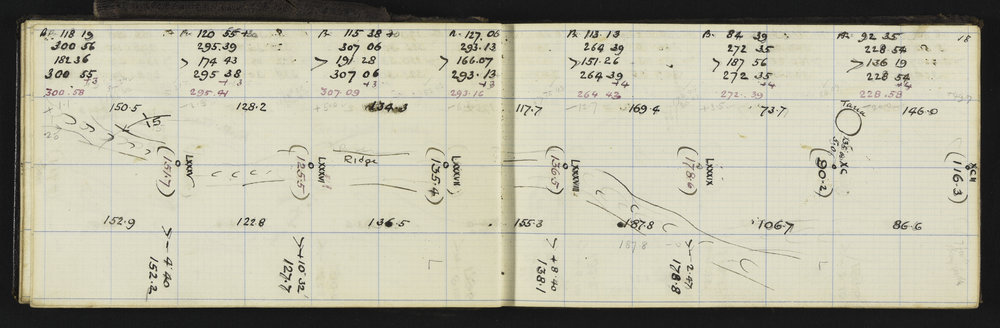 B. 118 19
300 56
182 36
300 55
+3
300.58
B. 120 55
295.39
> 174 43
295 38
+3
295.41
B. 115 38
307 06
> 191 28
307 06
+3
307.09
B. 127.06
293.13
> 166.07
293.13
+3
293.16
B. 113 13
264 39
> 151.26
264 39
+4
264 43
B. 84 39
272 35
> 187 56
272 35
+4
272.39
B. 92 35
228 54
> 136 19
228 54
+4
228.58
150.5
128.2
134.3
117.7
169.4
73.7
Tana
146.0
15
Ridge
(151.7) LXXXV
(125.5) LXXXVI
(135.4) LXXXVII
(136.5) LXXXVIII
(178.6) LXXXIX
(90.2) XC
(116.3) XCII
152.9
122.8
136.5
155.3
187.8
106.7
86.6
187.8
> - 4.40
152.2
> + 10.32
127.7
> + 8.40
138.1
> - 2.47
178.8